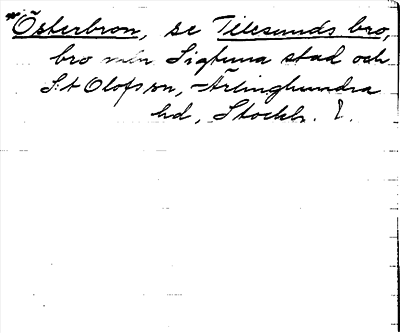 "Österbron, se Tilesunds bro,
bro mln Sigtuna stad och
S:t Olofs sn, Ärlinghundra
hd, Stockh. l.